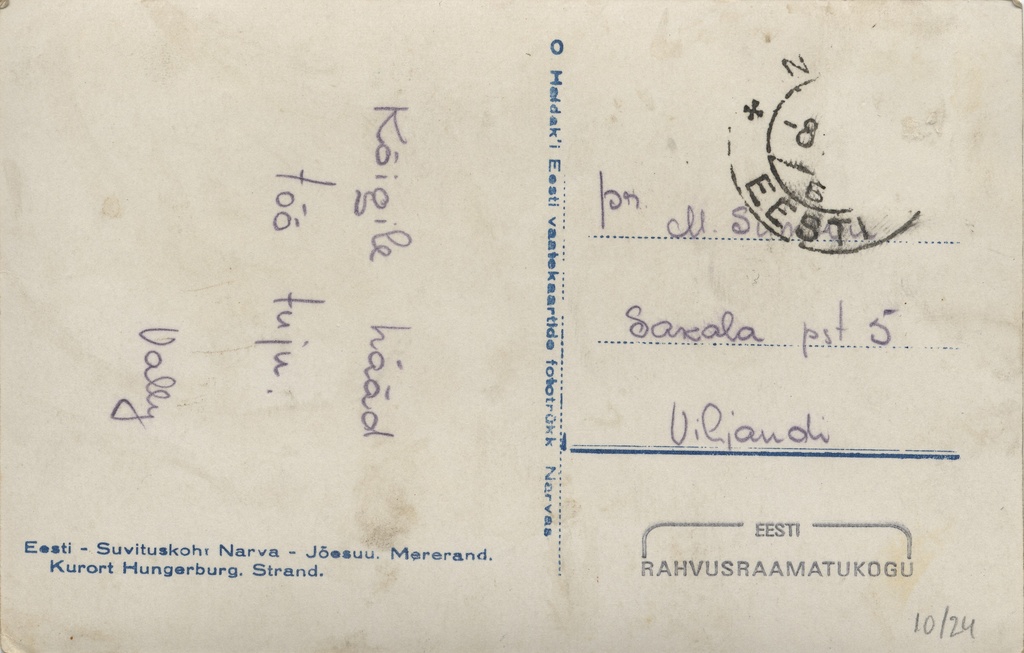 Kõigile hääd
töö tuju.
Vally
O Haidak'i Eesti vaatekaartide fototrükk Narvas
N
-8
EESTI
pr. M.
Sakala pst 5
Viljandi
Eesti - Suvituskoht Narva - Jõesuu. Mererand.
Kurort Hungerburg. Strand.
EESTI
RAHVUSRAAMATUKOGU
10/24